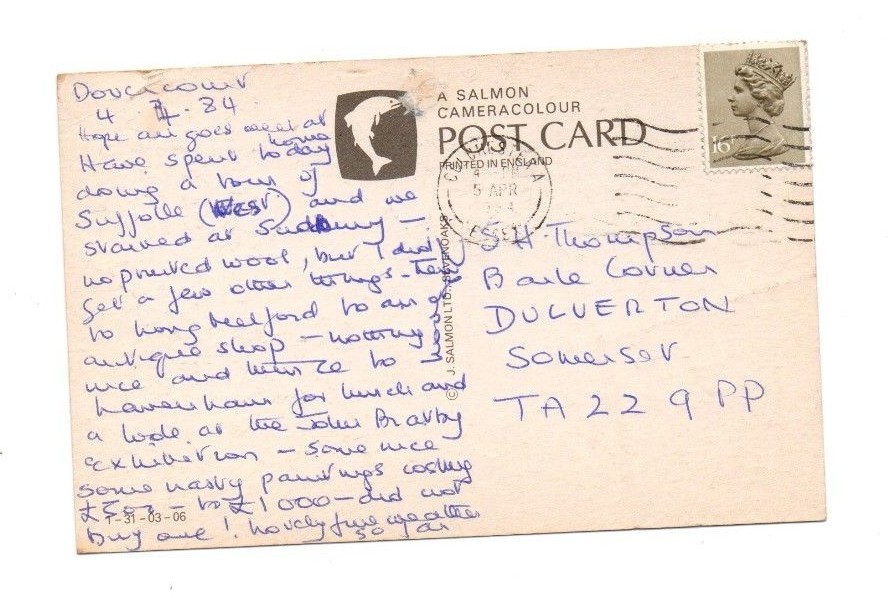 Dovercourt
4 4. 84
Hope all goes well at
home
Have spent today
doing a tour of
Suffolk (West) and we
started at Sudbury –
no printed wool, but I did
get a few other things – then
to Long Melford to an
antique shop – nothing
nice and hence to
Lavenham for lunch and
a look at the John Bratby
exhibition – some nice
some nasty paintings costing
£500 – to £1000 – did not
buy one! Lovely fine weather
so far
1-31-03-06
A SALMON
CAMERACOLOUR
POST CARD
PRINTED IN ENGLAND
© J. SALMON LTD., SEVENOAKS
5 APR
ESSEX
16
S.H. Thompson
Barle Corner
DULVERTON
Somerset
TA22 9PP